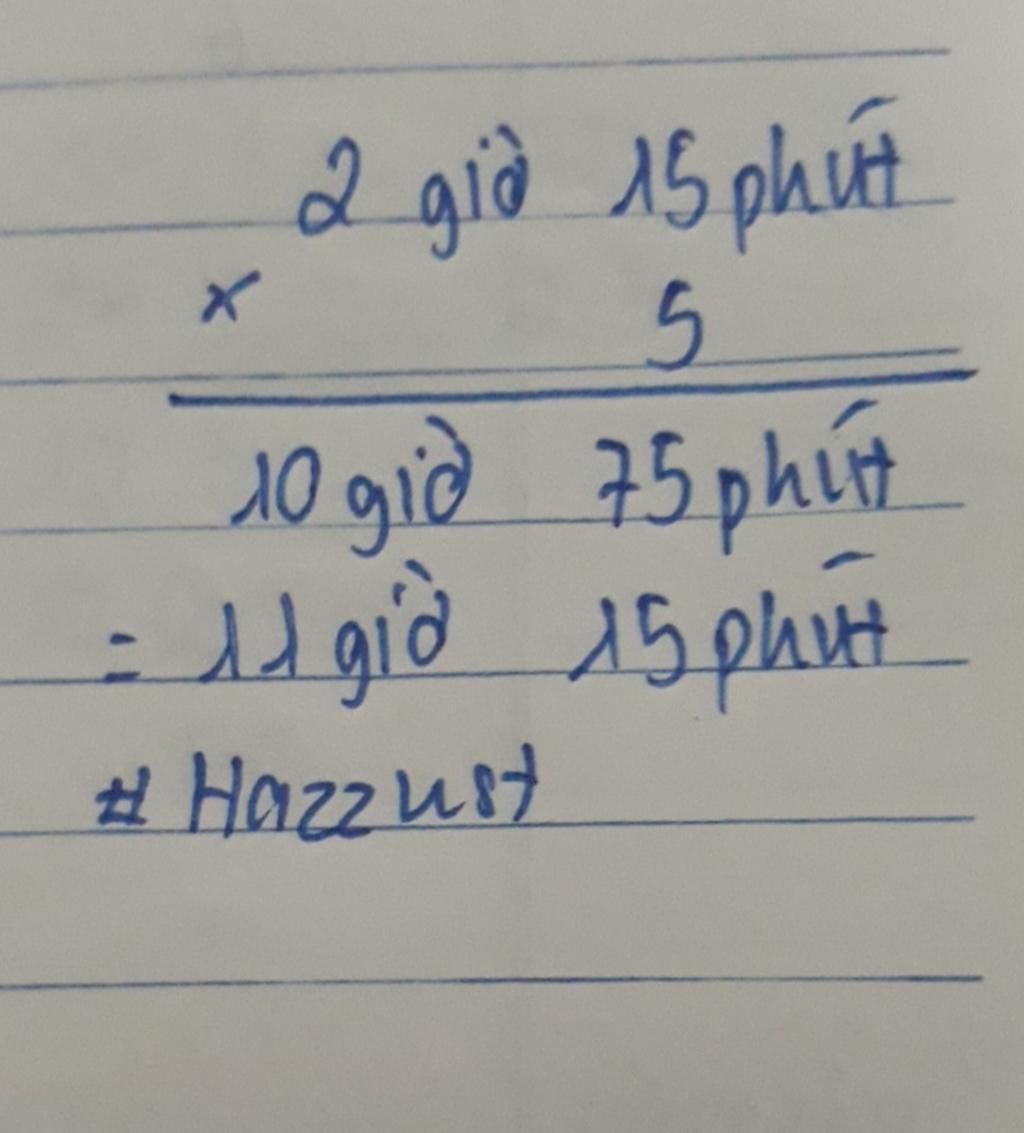 2 giờ 15 phút
x 5
10 giờ 75 phút
= 11 giờ 15 phút
# Hazzust